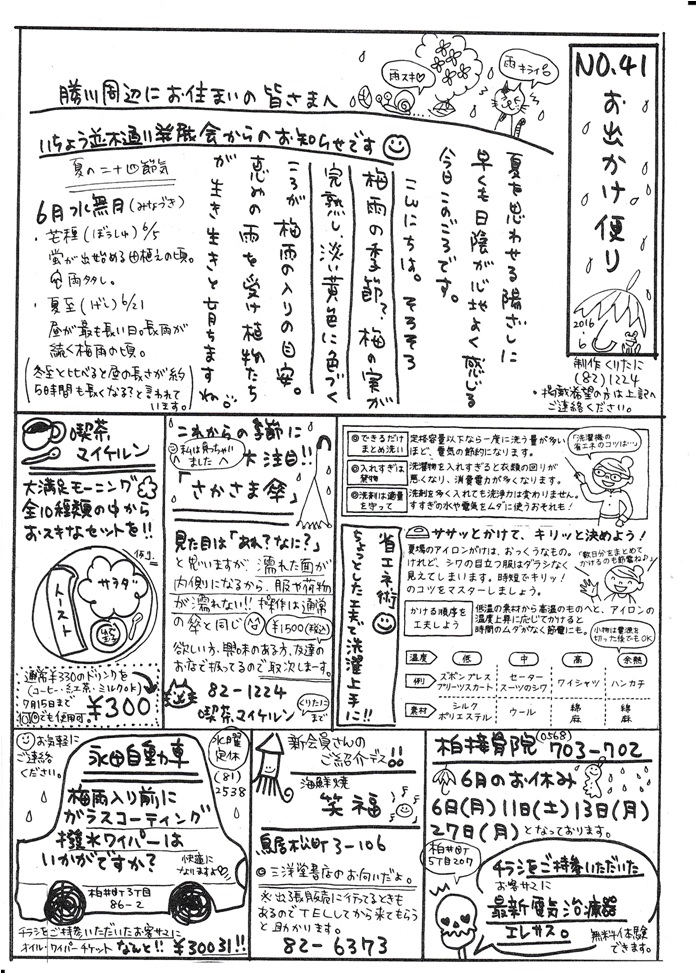 NO.41
お出かけ便り
2016
6
制作くりたに
(82)1224
・掲載希望の方は上記へ
ご連絡ください。
雨スキ♡
雨キライ
勝川周辺にお住まいの皆さまへ
いちょう並木通り発展会からのお知らせです
夏を思わせる陽ざしに
早くも日陰が心地よく感じる
今日このごろです。
こんにちは。そろそろ
梅雨の季節？梅の実が
完熟し、淡い黄色に色づく
ころが梅雨の入りの目安。
恵みの雨を受け植物たち
が生き生きと育ちますね。
夏の二十四節気
6月水無月(みなづき)
・芒種(ぼうしゅ)6/5
蛍が出始める田植えの頃。
・夏至(げし)6/21
昼が最も長い日。長雨が
続く梅雨の頃。
(冬至と比べると昼の長さが約
5時間も長くなる?と言われて
います。)
喫茶
マイケルン
大満足モーニング
全10種類の中から
おスキなセットを!!
例。
サラダ
トースト
ゆで玉子
通常¥330のドリンクを
(コーヒー・紅茶・ミルクのみ)
¥300
7月15日まで
何回でも使用可。
これからの季節に
大注目!!
私は見っちゃい
ました
「さかさま傘」
見た目は「あれ？なに？」
と思いますが、濡れた面が
内側になるから、服や荷物
が濡れない!!操作は通常
の傘と同じ ¥1500(税込)
欲しい方、興味のある方、友達の
お店で扱ってるので取次しまーす。
82-1224
喫茶マイケルン
くりたに
まで
◎できるだけ
まとめ洗い
定格容量以下なら一度に洗う量が多い
ほど、電気の節約になります。
◎入れすぎは
禁物
洗濯物を入れすぎると衣類の回りが
悪くなり、消費電力が多くなります。
◎洗剤は適量
を守って
洗剤を多く入れても洗浄力は変わりません。
すすぎの水や電気をムダに使うおそれも！
「洗濯機の
省エネのコツは…」
省エネ術
ちょっとした工夫で洗濯上手に!!
ササッとかけて、キリッと決めよう！
夏場のアイロンがけは、おっくうなもの。
けれど、シワの目立つ服はダラシなく
見えてしまいます。時短でキリッ！
のコツをマスターしましょう。
「数日分をまとめて
かけるのも節電ね♪」
かける順序を
工夫しよう
低温の素材から高温のものへと、アイロンの
温度上昇に応じてかけると
時間のムダがなく節電にも。
小物は電源を
切った後でもOK
温度 低 中 高 余熱
例 ズボンプレス プリーツスカート セーター スーツのシワ ワイシャツ ハンカチ
素材 シルク ポリエステル ウール 綿 麻 綿 麻
お気軽に
ご連絡
ください。
永田自動車
水曜
定休
(81)
2538
梅雨入り前に
ガラスコーティング
撥水ワイパーは
いかがですか？
快適に
なりますよ♡
柏井町3丁目
86-2
チラシをご持参いただいたお客サマに
オイル・ワイパーチケット なんと!! ¥30031!!
新会員さんの
ご紹介デス!!
海鮮焼
笑福
鳥居松町3-106
◎三洋堂書店のお向いだよ。
※出張販売に行ってるときも
あるのでTELしてから来てもらう
と助かります。
82-6373
柏接骨院 (0568)703-702
6月のお休み
6日(月)11日(土)13日(月)
27日(月)となっております。
柏井町
5丁目207
チラシをご持参いただいた
お客サマに
最新電気治療器
エレサス。
無料体験
できます。